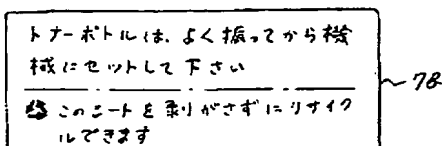 トナーボトルは、よく振ってから機
械にセットして下さい
このニートを剥がさずにリサイク
ルできます
78